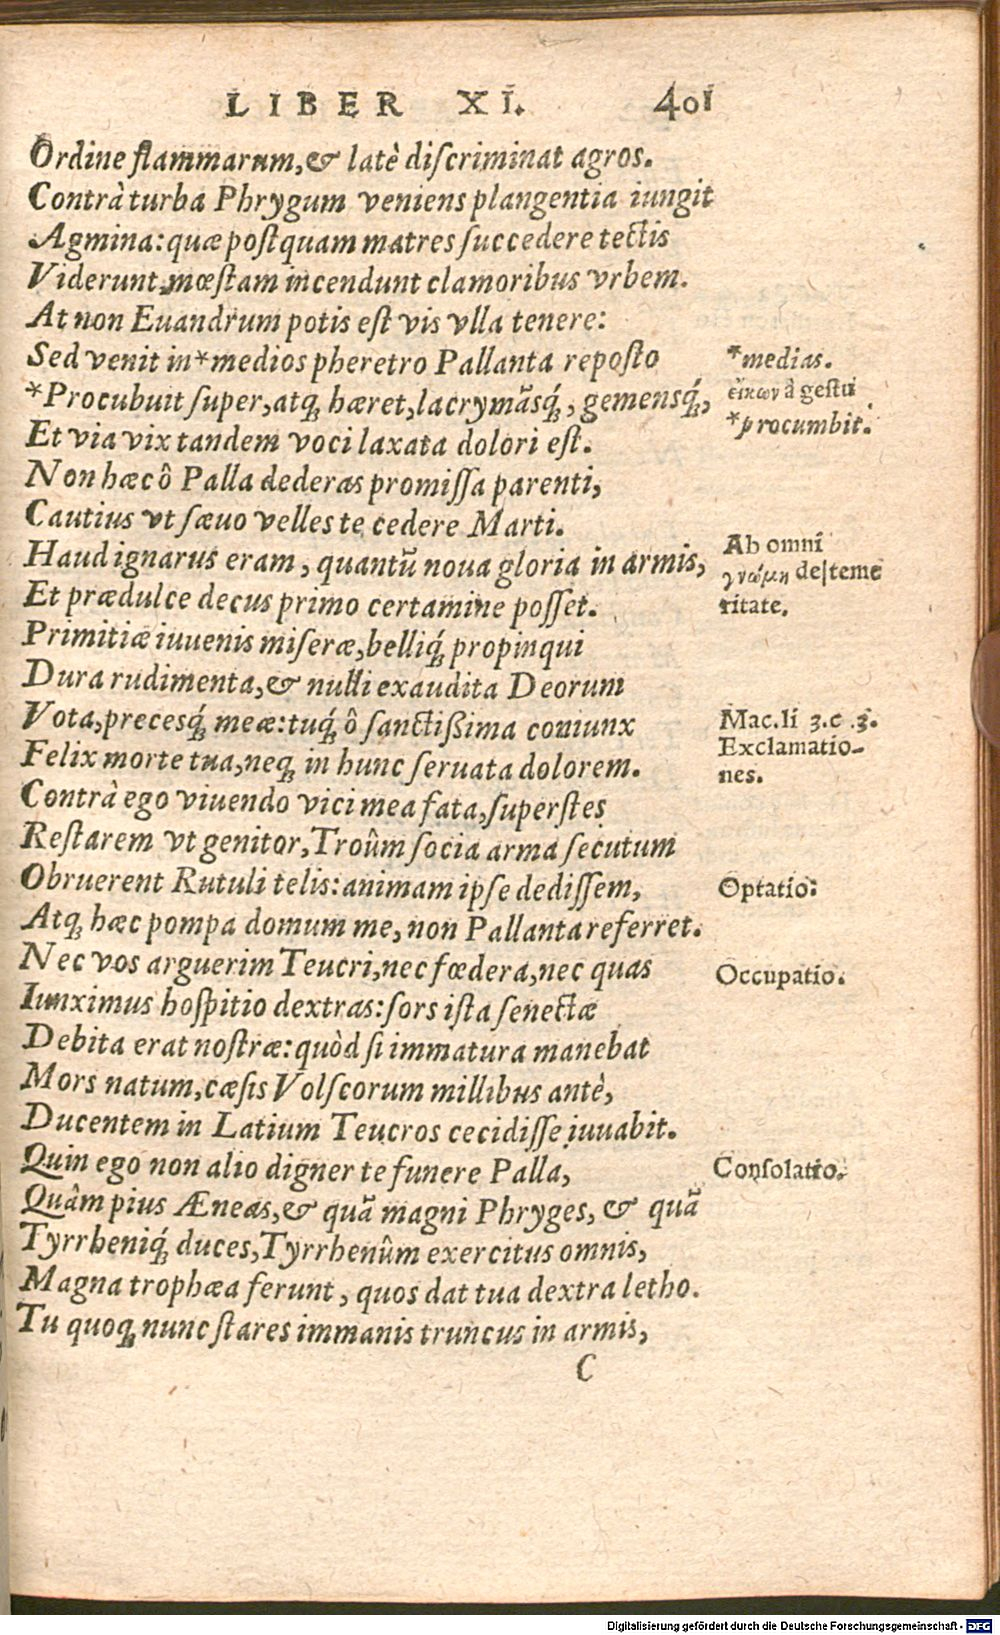 LIBER XI. 401
Ordine flammarum, & latè diſcriminat agros.
Contrà turba Phrygum veniens plangentia iungit
Agmina: quæ poſtquam matres ſuccedere tectis
Viderunt, mœſtam incendunt clamoribus vrbem.
At non Euandrum potis eſt vis vlla tenere:
Sed venit in *medios pheretro Pallanta repoſto
*medias.
εἰκων à geſtu
*Procubuit ſuper, atq; hæret, lacrymãsq́;, gemensq́;,
*procumbit.
Et via vix tandem voci laxata dolori eſt.
Non hæc ô Palla dederas promiſſa parenti,
Cautius vt ſæuo velles te cedere Marti.
Haud ignarus eram, quantũ noua gloria in armis,
Ab omni
γνώμη de ſteme
ritate.
Et prædulce decus primo certamine poſſet.
Primitiæ iuuenis miſeræ, belliq́; propinqui
Dura rudimenta, & nulli exaudita Deorum
Vota, precesq́; meæ: tuq́; ô ſanctiſſima coniunx
Mac. li 3. c. 3.
Exclamatio-
nes.
Felix morte tua, neq; in hunc ſeruata dolorem.
Contrà ego viuendo vici mea fata, ſuperſtes
Reſtarem vt genitor, Troûm ſocia arma ſecutum
Obruerent Rutuli telis: animam ipſe dediſſem,
Optatio:
Atq; hæc pompa domum me, non Pallanta referret.
Nec vos arguerim Teucri, nec fœdera, nec quas
Occupatio.
Iunximus hoſpitio dextras: ſors iſta ſenectæ
Debita erat noſtræ: quòd ſi immatura manebat
Mors natum, cæſis Volſcorum millibus antè,
Ducentem in Latium Teucros cecidiſſe iuuabit.
Quin ego non alio digner te funere Palla,
Conſolatio.
Quâm pius Æneas, & quã magni Phryges, & quã
Tyrrheniq́; duces, Tyrrhenûm exercitus omnis,
Magna trophæa ferunt, quos dat tua dextra letho.
Tu quoq; nunc ſtares immanis truncus in armis,
C
Digitalisierung gefördert durch die Deutsche Forschungsgemeinschaft - DFG